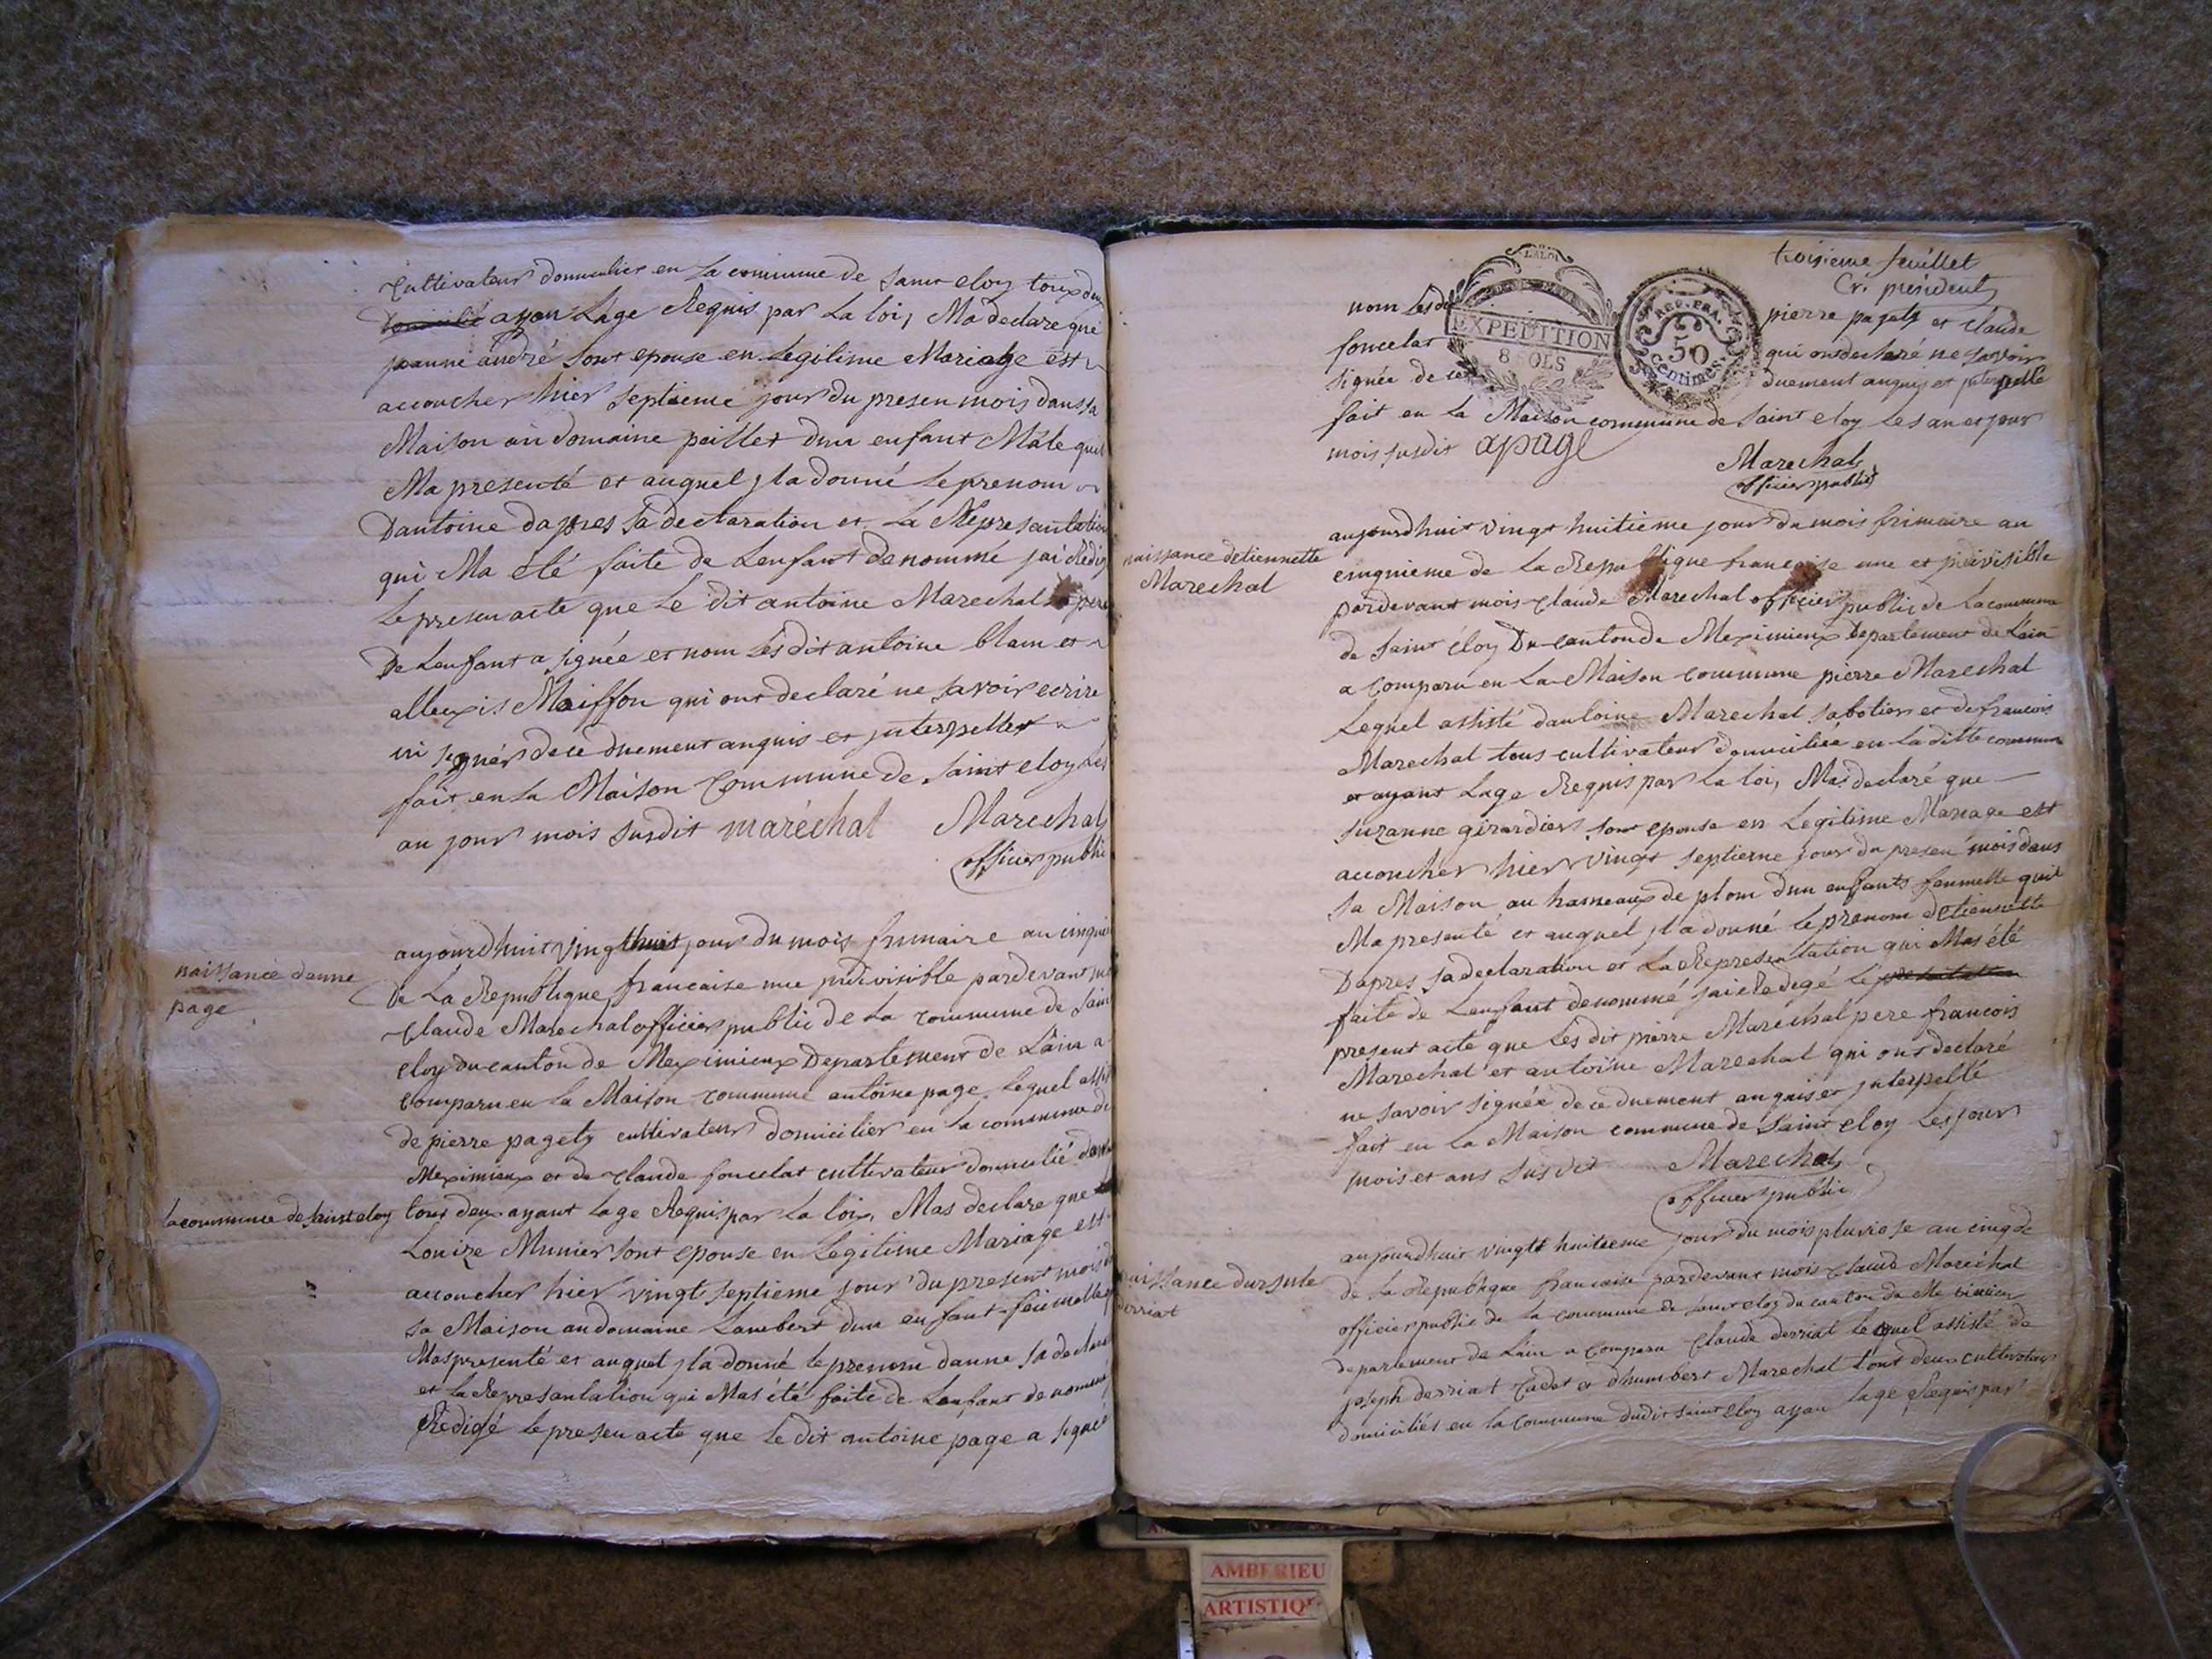 Cultivateur domicilier en La commune de saint eloy tous deux
ayan Lage Requis par La loi, Ma declare que
jeanne andré sont epouse en Legitime Mariage est
accoucher hier septieme jour du presen mois dans sa
Maison au domaine peillet dun enfant Mâle quil
Ma presenté et auquel jla donné Le prenom
Dantoine dapres sa declaration et La Represantation
qui Ma été faite de Lenfant denommé jai Redigé
Le presen acte que Le dit antoine Marechal pere
De Lenfant a signée et nom Lesdit antoine blain et
allexis Maiffon qui ont declaré ne savoir ecrire
ni signér de ce duement anquis et jnterpellet
fait en La Maison Commune de saint eloy Les
an jour mois susdit maréchal Marechal
officier public
naissance danne
page
aujourdhuit vingthuit jour du mois frimaire an cinquieme
De La Republique francaise une jndivisible pardevant
Claude Marechal officier public de La commune de Saint
eloy du canton de Meximieux Departement de Lain a
Comparu en La Maison commune antoine page Lequel assisté
de pierre pagety cultivateur domicilier en La commune de
Meximieux et de Claude foncelat cultivateur domicilié dans
la commune de saint eloy
tous deux ayant Lage Requis par La loix, Mas declare que
Louize Munier sont epouse en Legitime Mariage est
accoucher hier vingt septieme jour du present mois
sa Maison au domaine Lambert dun enfant feumelle
Mas presenté et auquel jla donné le prenom danne sa declaration
et La Represantation qui Mas été faite de Lenfant denommé
Redigé le presen acte que Le dit antoine page a signée
troisieme feuillet
Cr. president
LA LOI
EXPEDITION
8 SOLS
REP. FRA.
50
centimes
nom Lesdit pierre pagety et Claude
foncelat qui ont declaré ne savoir
signée de ce duement anquis et jnterpellé
fait en La Maison commune de saint eloy Les an et jour
mois susdit apage
Marechal
officier public
naissance detiennette
Marechal
aujourdhuit vingt huitieme jour du mois frimaire an
cinquieme de La Republique francaise une et jndivisible
pardevant mois Claude Marechal officier public de La commune
de saint éloy Du canton de Meximieux Departement de Lain
a Comparu en La Maison Commune pierre Marechal
Lequel assisté dantoine Marechal sabotier et de francois
Marechal tous cultivateur domicilier en La ditte commune
et ayant Lage Requis par La loi, Mas declaré que
suzanne girardier sont epouse en Legitime Mariage est
accoucher hier vingt septieme jour du presen mois dans
sa Maison au hameaux de plom dun enfants feumelle quil
Ma presenté et auquel jla donné Le prenom detiennette
Dapres sa declaration et La Represantation qui Mas été
faite de Lenfant denommé jai Redegé Le
present acte que Les dit pierre Maréchal pere francois
Maréchal et antoine Marechal qui ont declaré
ne savoir signée de ce duement anquis et jnterpellé
fait en La Maison commune de Saint eloy Les jour
mois et ans susdit Marechal
officier public
naissance dursule
derriat
aujourdhuit vingt huitieme jour du mois pluviose an cinq de
de La Republique francaise pardevant mois Claude Maréchal
officier public de La commune de saint eloy du canton de Meximieux
departement de Lain a Comparu Claude derriat Lequel assisté de
joseph derriat Cadet et dhumbert Marechal tout deux cultivateur
domiciliés en La Commune dudit saint eloy ayan Lage Requis par
AMBERIEU
ARTISTIQ